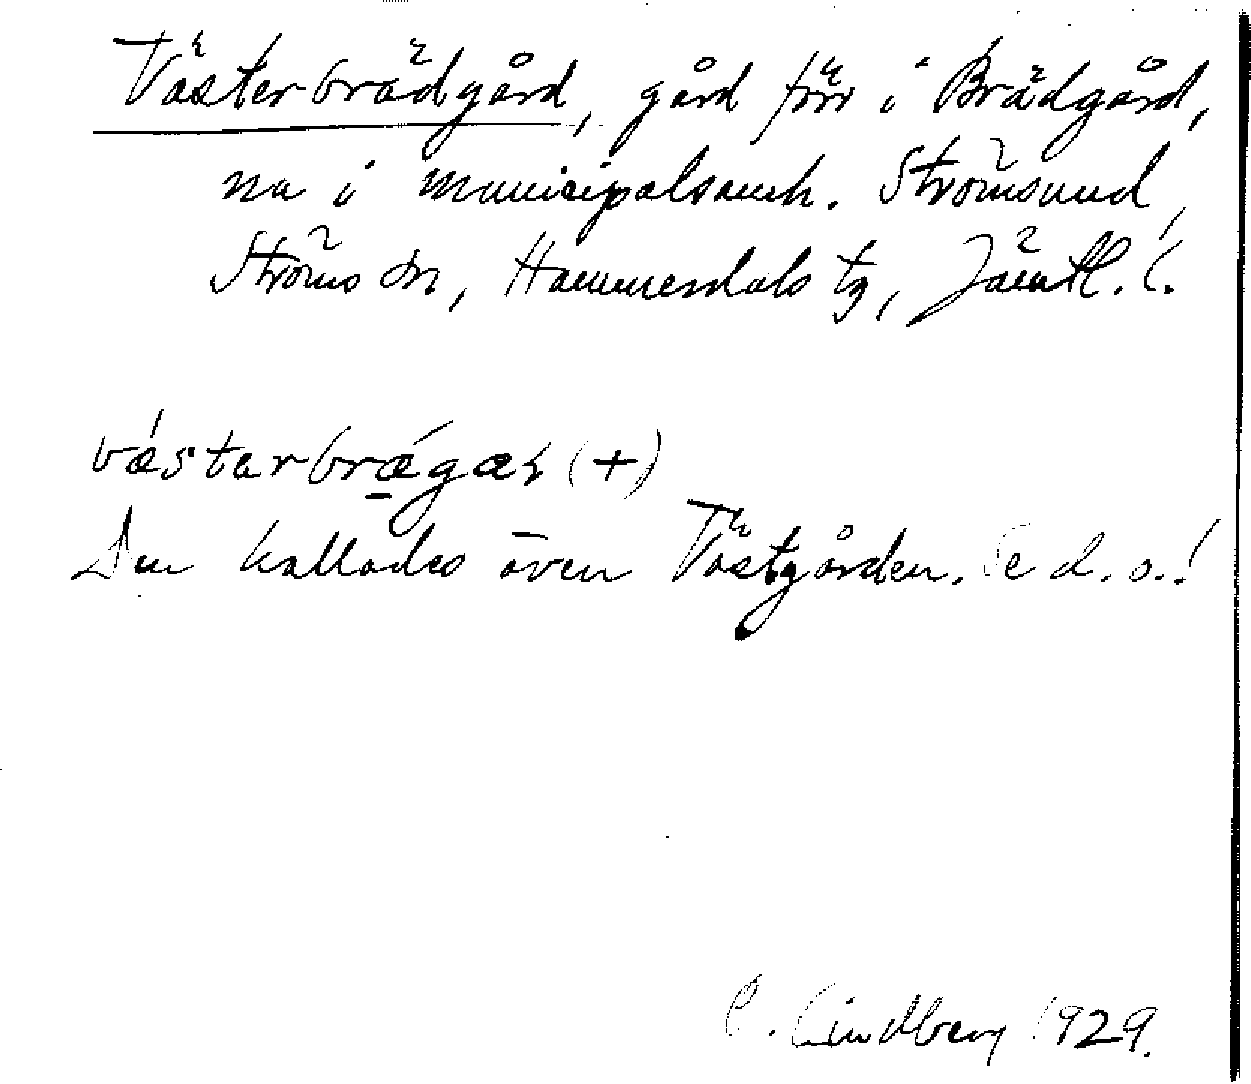 Västerbrädgård, gård förr i Brädgård,
na i municipalsamh. Strömsund,
Ströms sn, Hammerdals tg, Jämtl. l.
våstarbrægaṣ (+)
Den kallades även Västgården. Se d. o.!
C. Lindberg 1929.